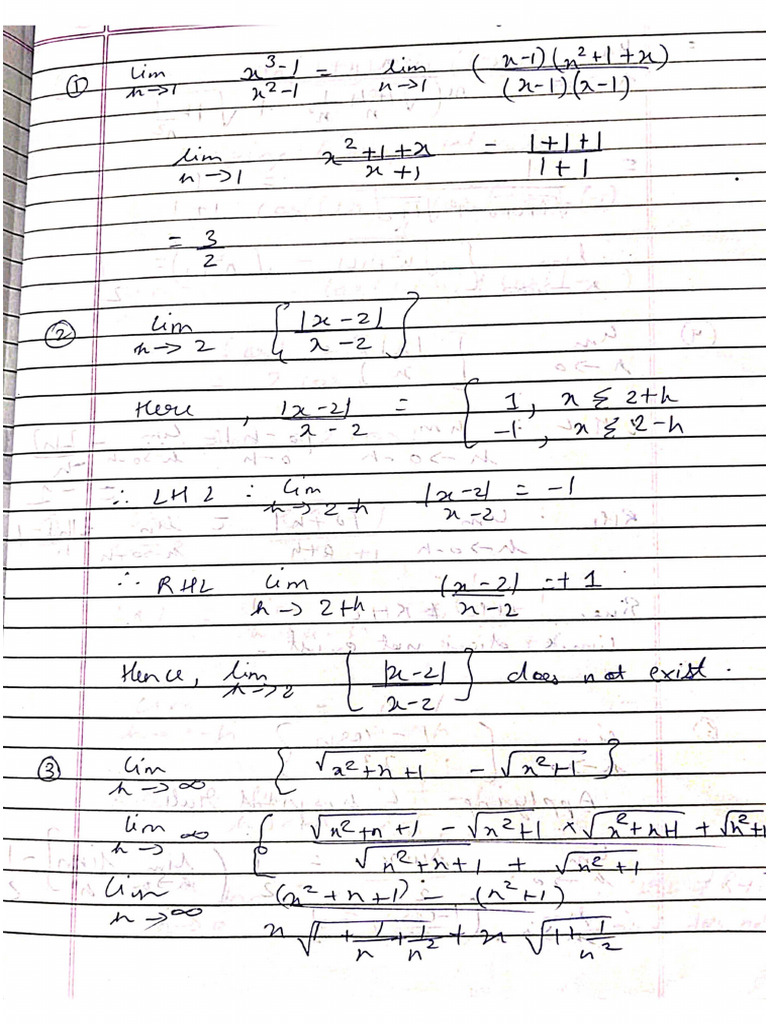 ① lim x→1 x³-1/x²-1 = lim x→1 (x-1)(x²+1+x)/(x-1)(x-1)
lim x→1 x²+1+x/x+1 = 1+1+1/1+1
= 3/2
② lim x→2 {|x-2|/x-2}
Here, |x-2|/x-2 = { 1, x ≤ 2+h
-1, x ≤ 2-h
∴ LHL : lim x→2-h |x-2|/x-2 = -1
∴ RHL lim x→2+h (x-2)/x-2 = +1
Hence, lim x→2 {|x-2|/x-2} does not exist.
③ lim x→∞ {√x²+x+1 - √x²+1}
lim x→∞ { √x²+x+1 - √x²+1 × √x²+x+1 + √x²+1/√x²+x+1 + √x²+1
lim x→∞ (x²+x+1) - (x²+1)/x√1+1/x+1/x² + x√1+1/x²